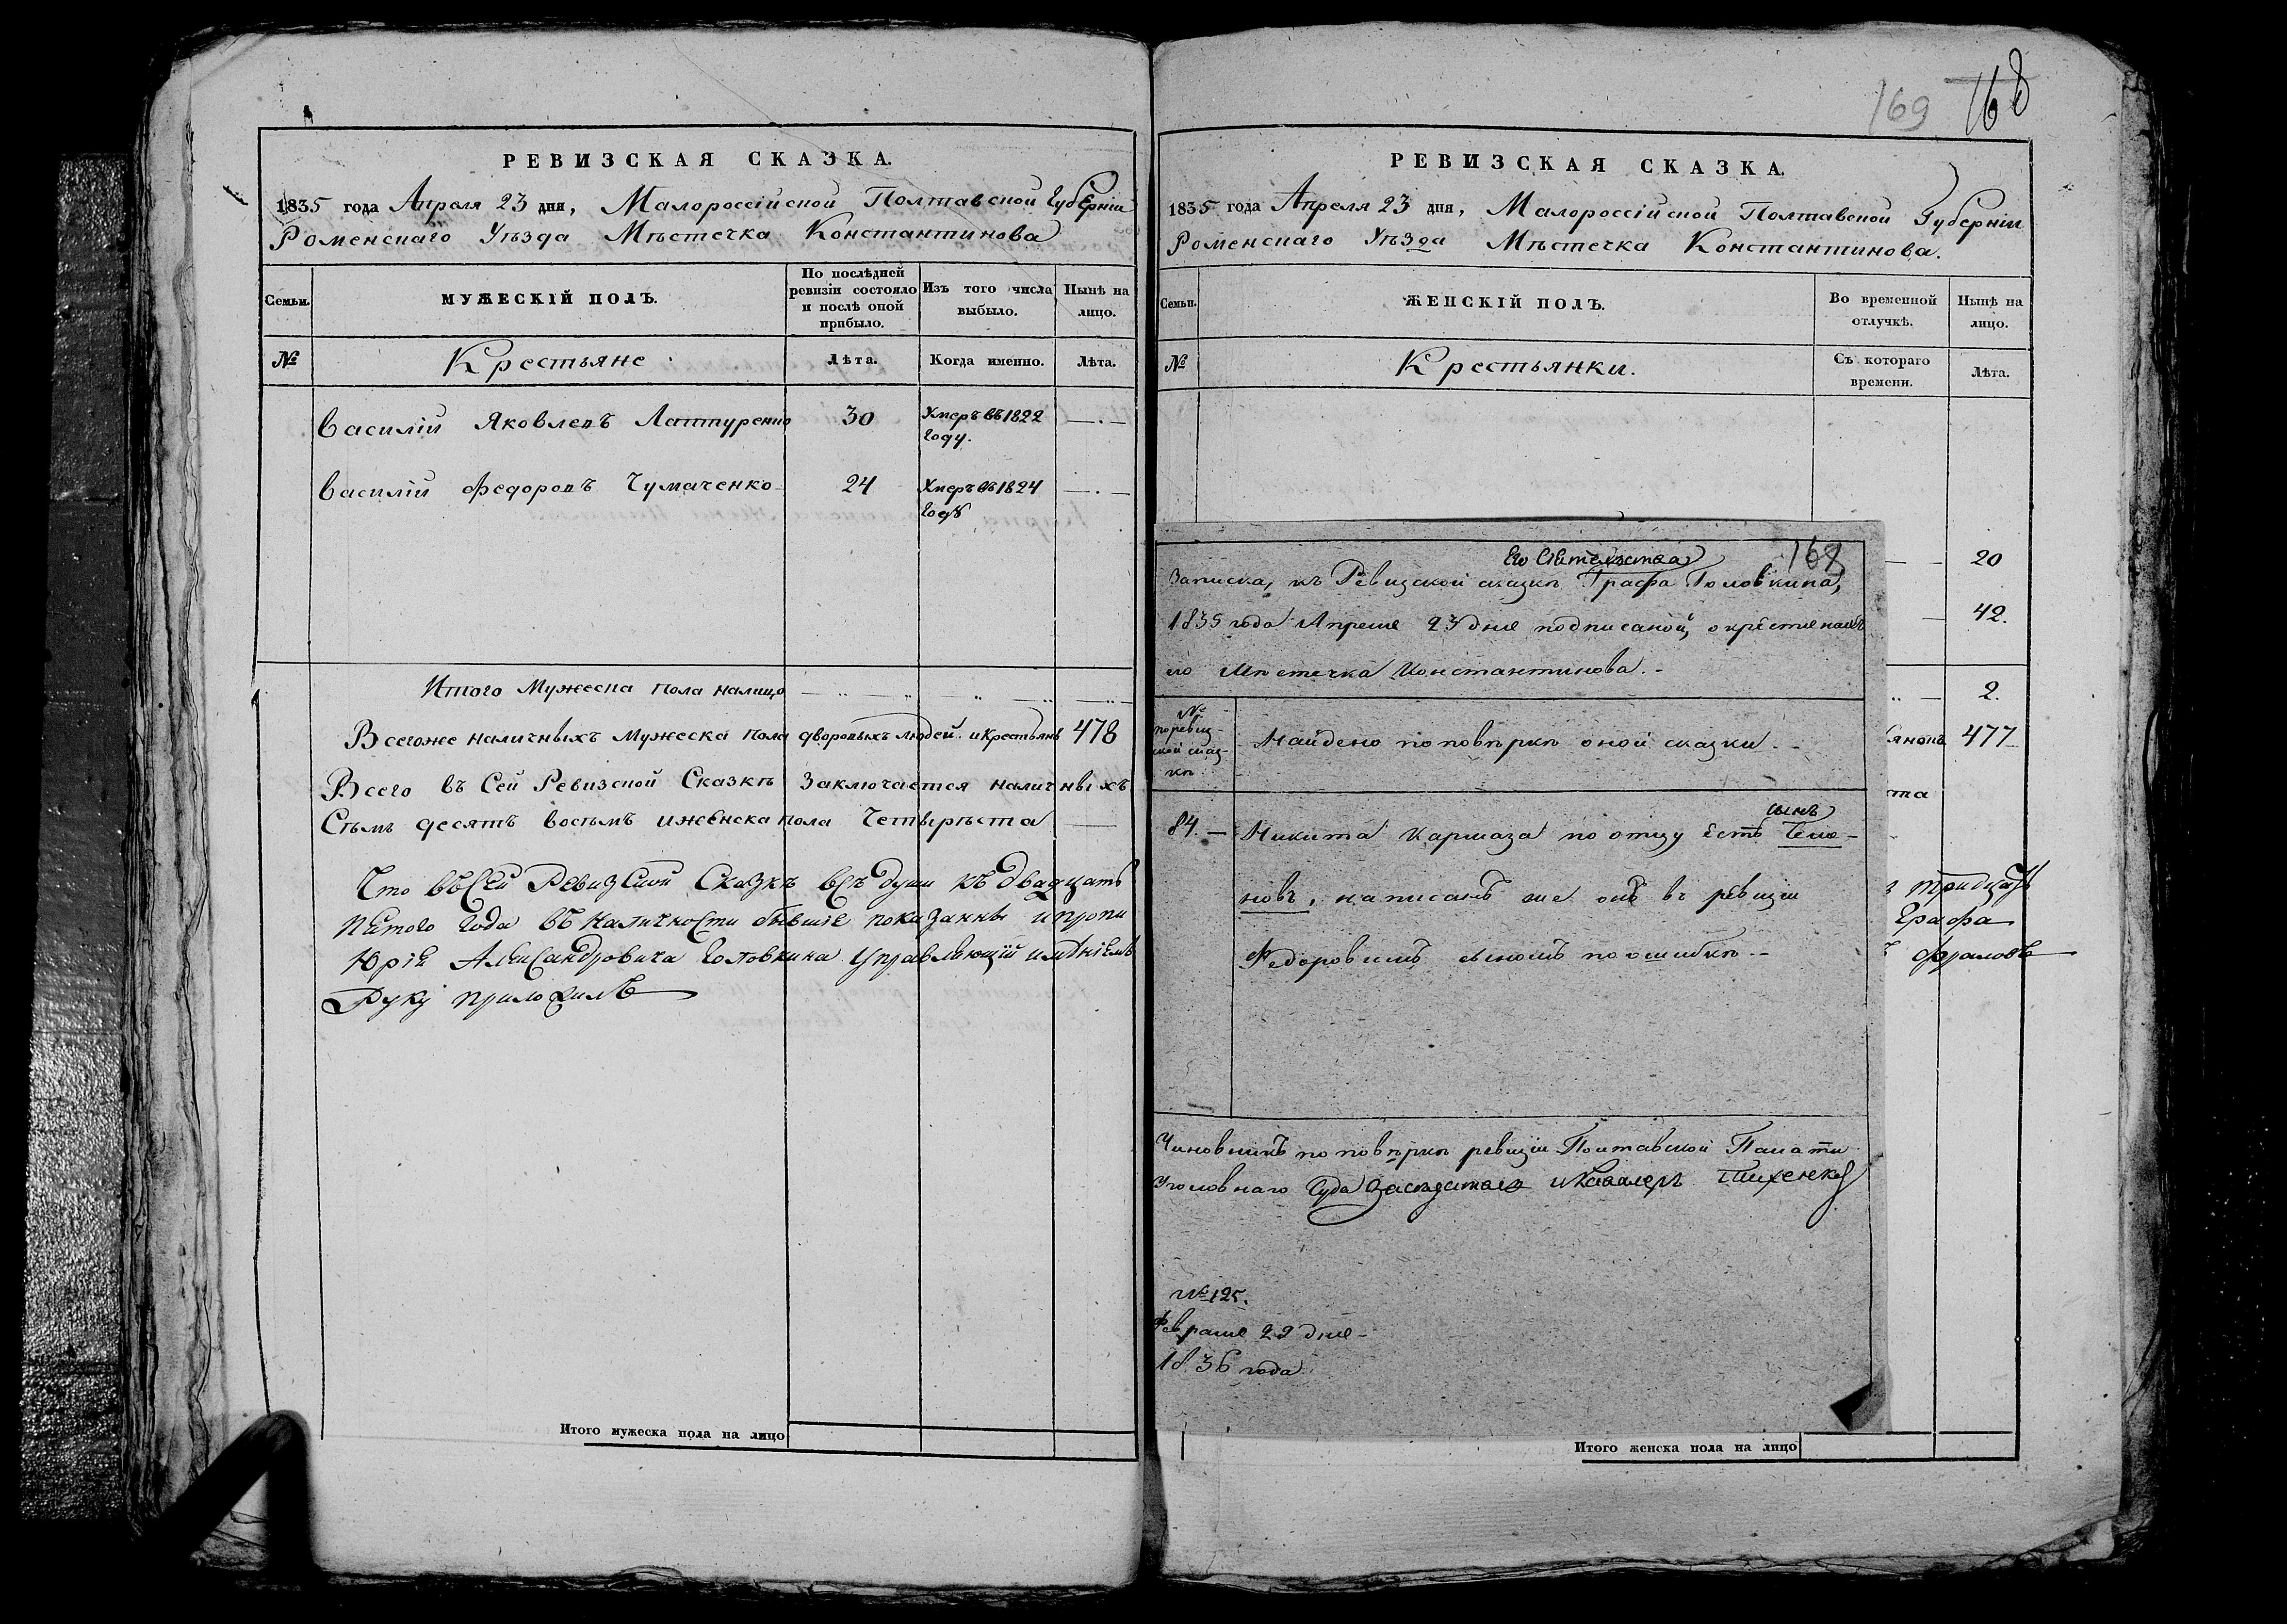 РЕВИЗСКАЯ СКАЗКА.
1835 года Апреля 23 дня, Малороссійской Полтавской Губерніи
Роменскаго Уѣзда Мѣстечка Константинова
Семьи.
МУЖЕСКІЙ ПОЛЪ.
По послѣдней
ревизіи состояло
и послѣ оной
прибыло.
Изъ того числа
выбыло.
Нынѣ на
лицо.
№
Крестьяне
Лѣта.
Когда именно.
Лѣта.
Василій Яковлевъ 30 Умеръ въ 1822
году.
Василій Федоровъ Чумаченко 24 Умеръ въ 1824
году
Итого Мужеска пола налицо
Всегоже наличныхъ мужеска пола дворовыхъ людей и крестьянъ 478
Всего въ Сей Ревизской Сказкѣ Заключается наличныхъ
Семь десятъ восемь иженска пола Четыреста
Что въ Сей Ревизской Сказкѣ всѣ души къ двадцать
пятого Года въ наличности бывшіе показаны и пропи
Юрія Александровича Головкина Управляющій имѣніемъ
Руку приложилъ
Итого мужеска пола на лицо
169 168
РЕВИЗСКАЯ СКАЗКА.
1835 года Апреля 23 дня, Малороссійской Полтавской Губерніи
Роменскаго Уѣзда Мѣстечка Константинова.
Семьи.
ЖЕНСКІЙ ПОЛЪ.
Во временной
отлучкѣ.
Нынѣ на
лицо.
№
Крестьянки.
Съ котораго
времени.
Лѣта.
20
42.
2.
477
та
тридцать
Графа
Его Сіятельства
168
Записка, къ Ревизской сказкѣ Графа Головкина,
1835 года Апреля 23 дня подписаной, о крестьянахъ
его мѣстечка Константинова.
№
по ревиз-
ской сказ-
кѣ
Найдено поповѣркѣ оной сказки.
сынъ
84. Никита Кармаза по отцу есть Семе-
новъ, написанъ же онъ въ ревизіи
Федоровымъ сыномъ поошибкѣ.
Чиновникъ по повѣркѣ ревизіи Полтавской Палаты
Уголовнаго Суда Засѣдатель и Кавалеръ
№ 125.
Февраля 22 дня
1836 года
Итого женска пола на лицо